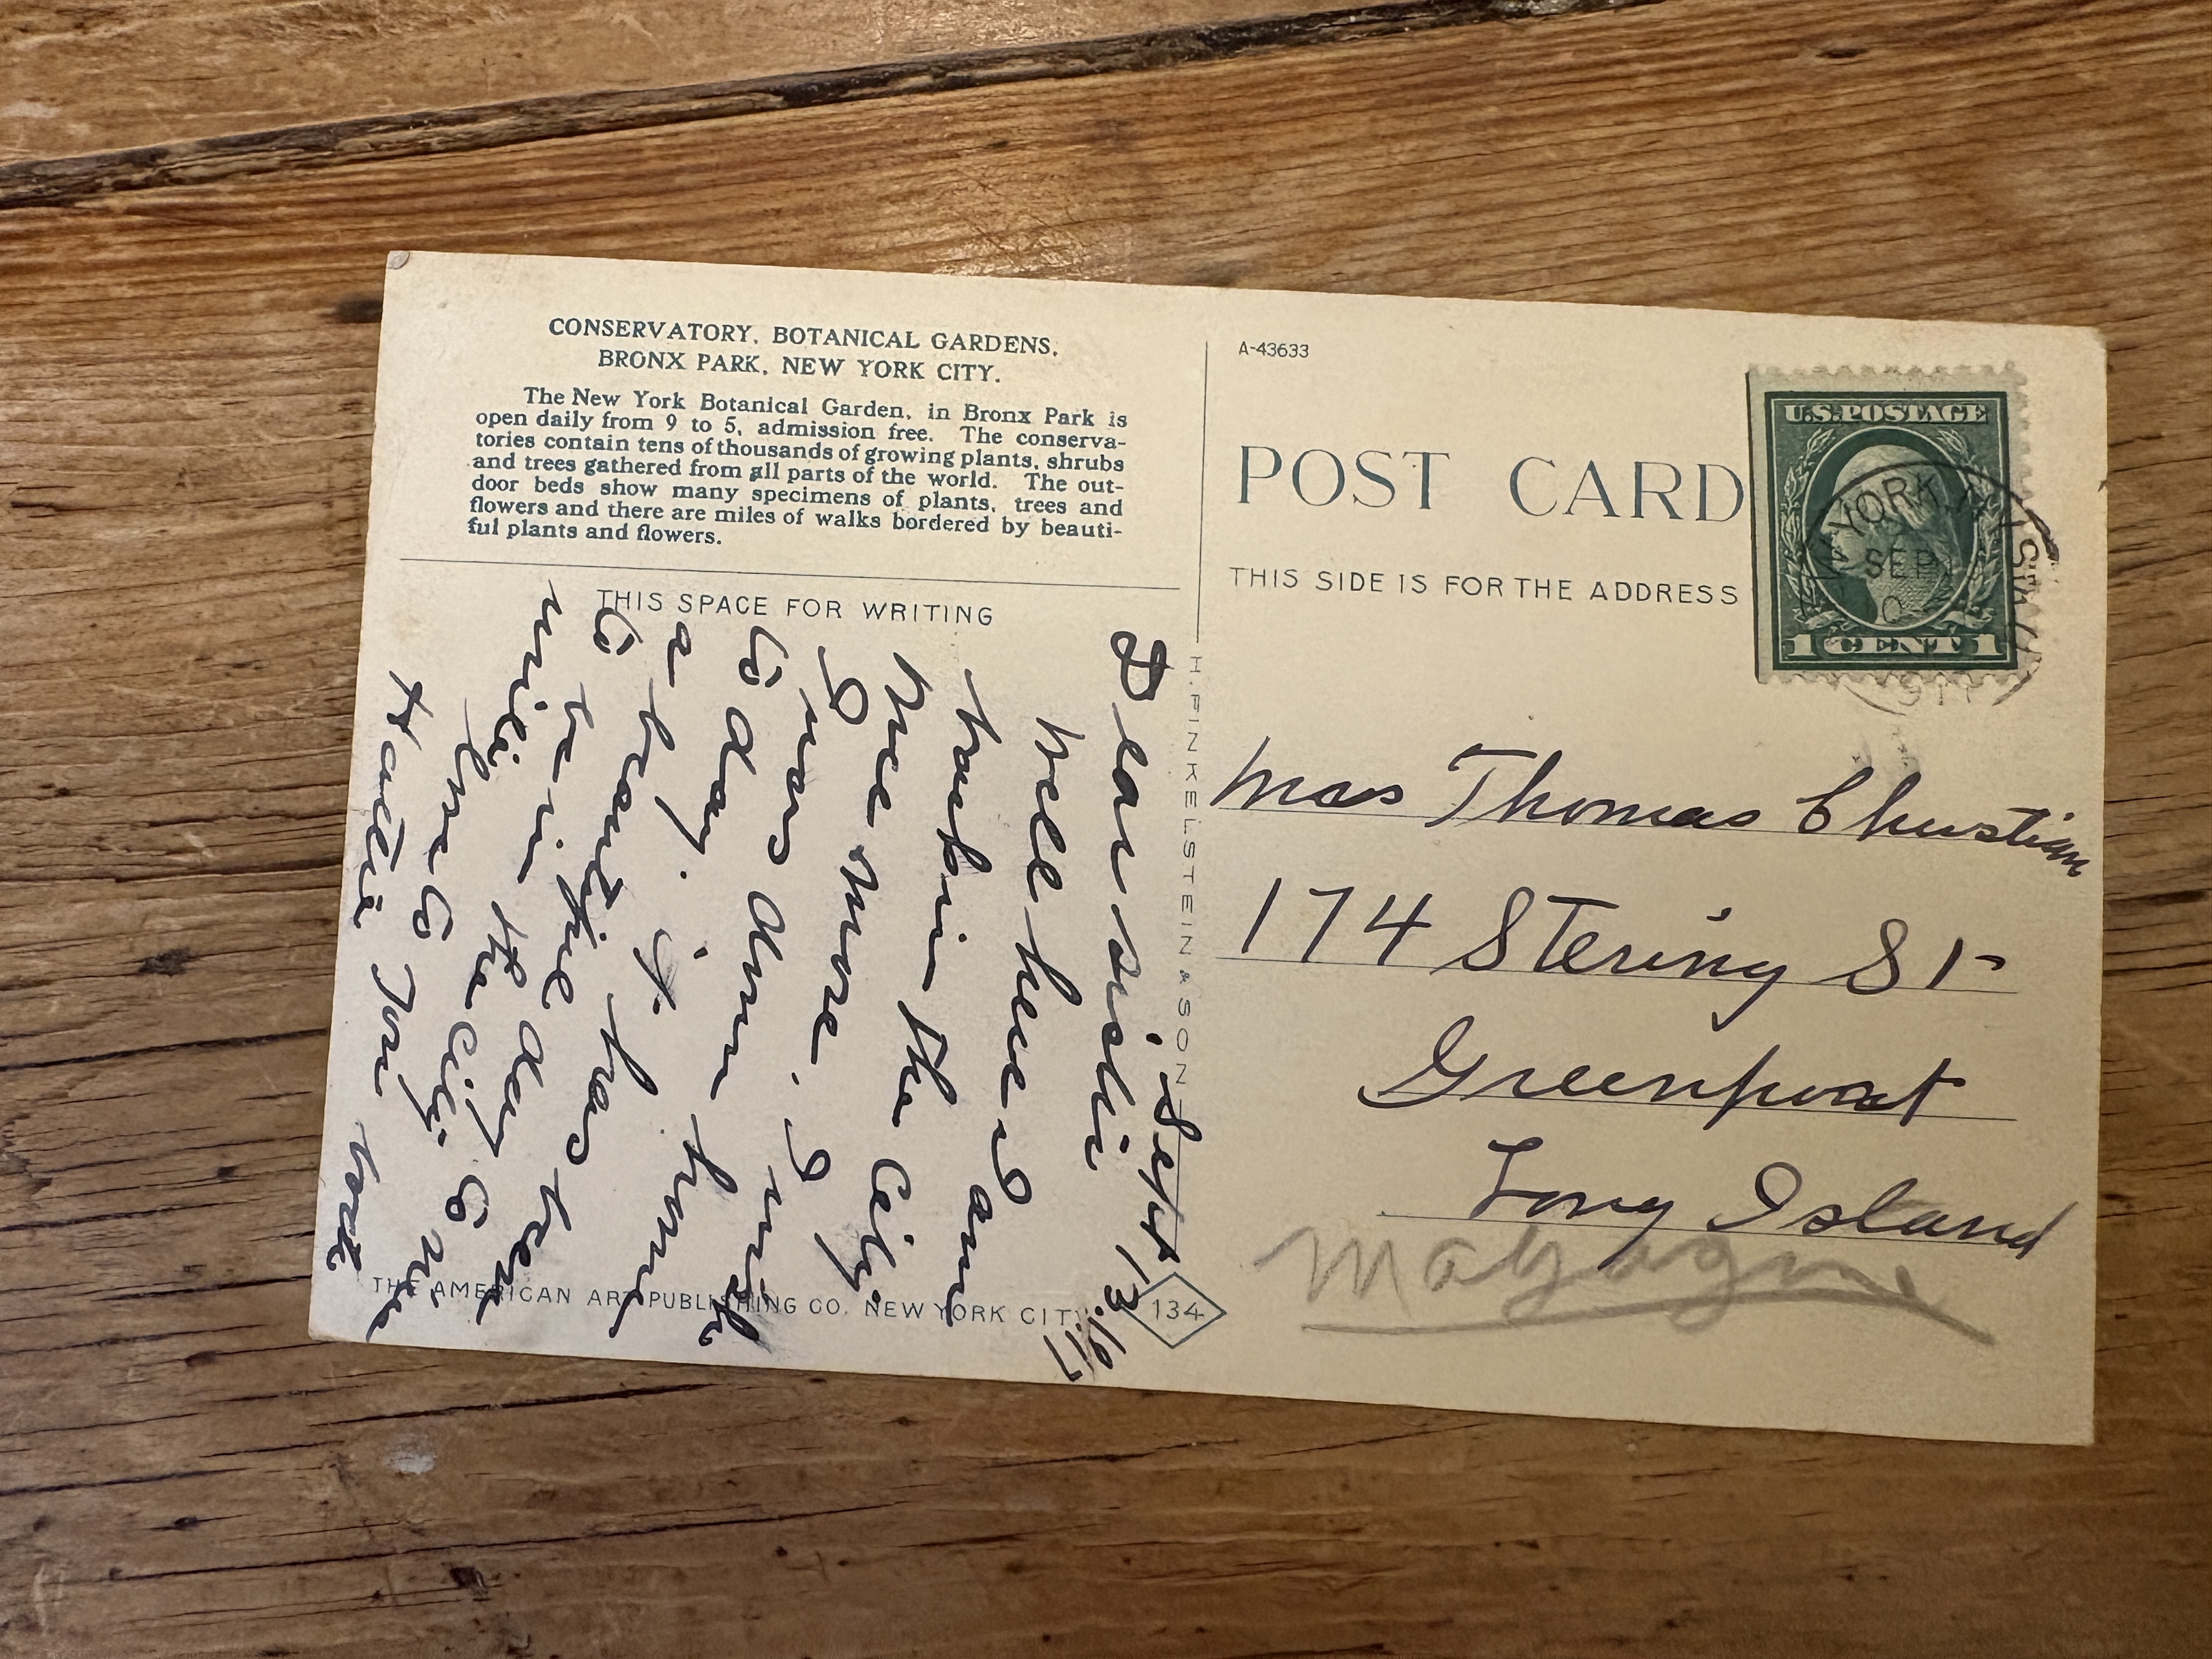 CONSERVATORY, BOTANICAL GARDENS,
BRONX PARK, NEW YORK CITY.
The New York Botanical Garden, in Bronx Park is
open daily from 9 to 5, admission free. The conserva-
tories contain tens of thousands of growing plants, shrubs
and trees gathered from all parts of the world. The out-
door beds show many specimens of plants, trees and
flowers and there are miles of walks bordered by beauti-
ful plants and flowers.
THIS SPACE FOR WRITING
Sept 13
17
Dear sister
well here I am
back in the City
once more. I
I was down home
to day. it has been
a beautiful day
to be in the City
love to
THE AMERICAN ART PUBLISHING CO. NEW YORK CITY
H. FINKELSTEIN & SON
134
A-43633
POST CARD
THIS SIDE IS FOR THE ADDRESS
U.S. POSTAGE
1 CENT 1
YORK
SEP
STA
Mrs Thomas Christian
174 Stering St
Greenport
Long Island